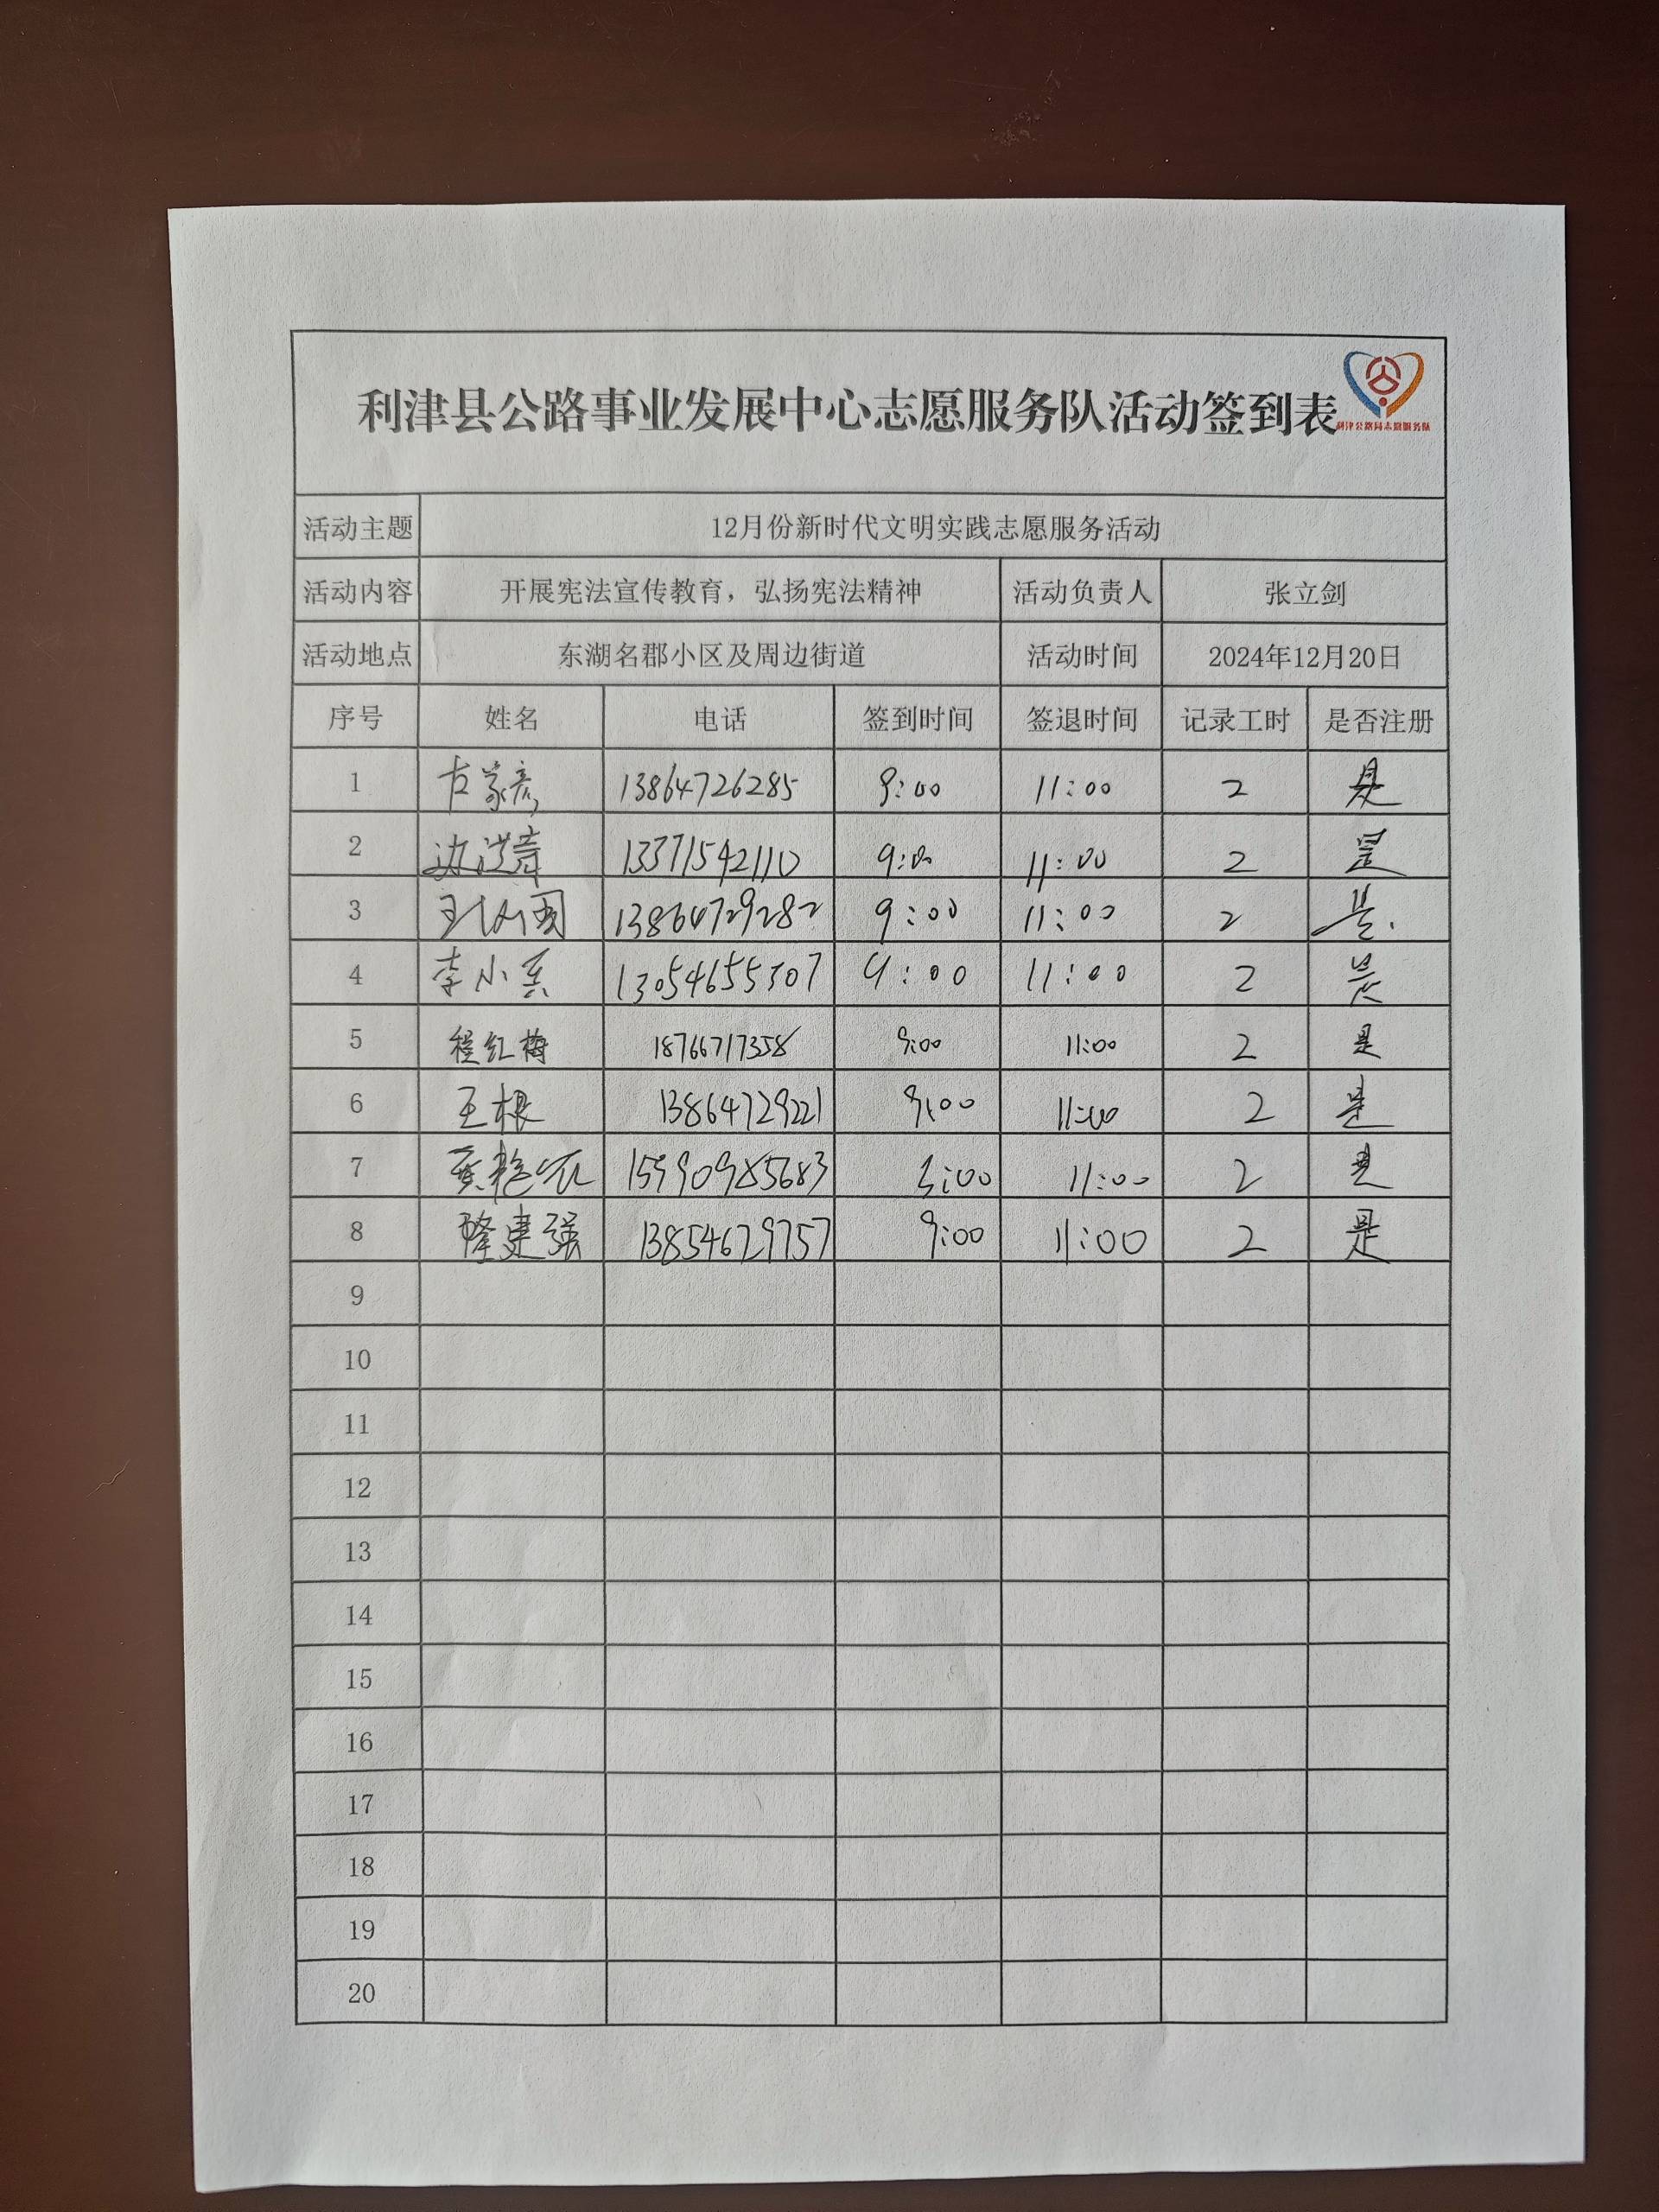 利津县公路事业发展中心志愿服务队活动签到表
利津公路局志愿服务队
活动主题 12月份新时代文明实践志愿服务活动
活动内容 开展宪法宣传教育，弘扬宪法精神 活动负责人 张立剑
活动地点 东湖名郡小区及周边街道 活动时间 2024年12月20日
序号 姓名 电话 签到时间 签退时间 记录工时 是否注册
1 13864726285 9:00 11:00 2 是
2 13371542110 9:00 11:00 2 是
3 13864729282 9:00 11:00 2 是.
4 李小 13054655307 9:00 11:00 2 是
5 程红梅 18766717358 9:00 11:00 2 是
6 王根 13864729221 9:00 11:00 2 是
7 15990985683 9:00 11:00 2 是
8 隆建强 13854629757 9:00 11:00 2 是
9
10
11
12
13
14
15
16
17
18
19
20